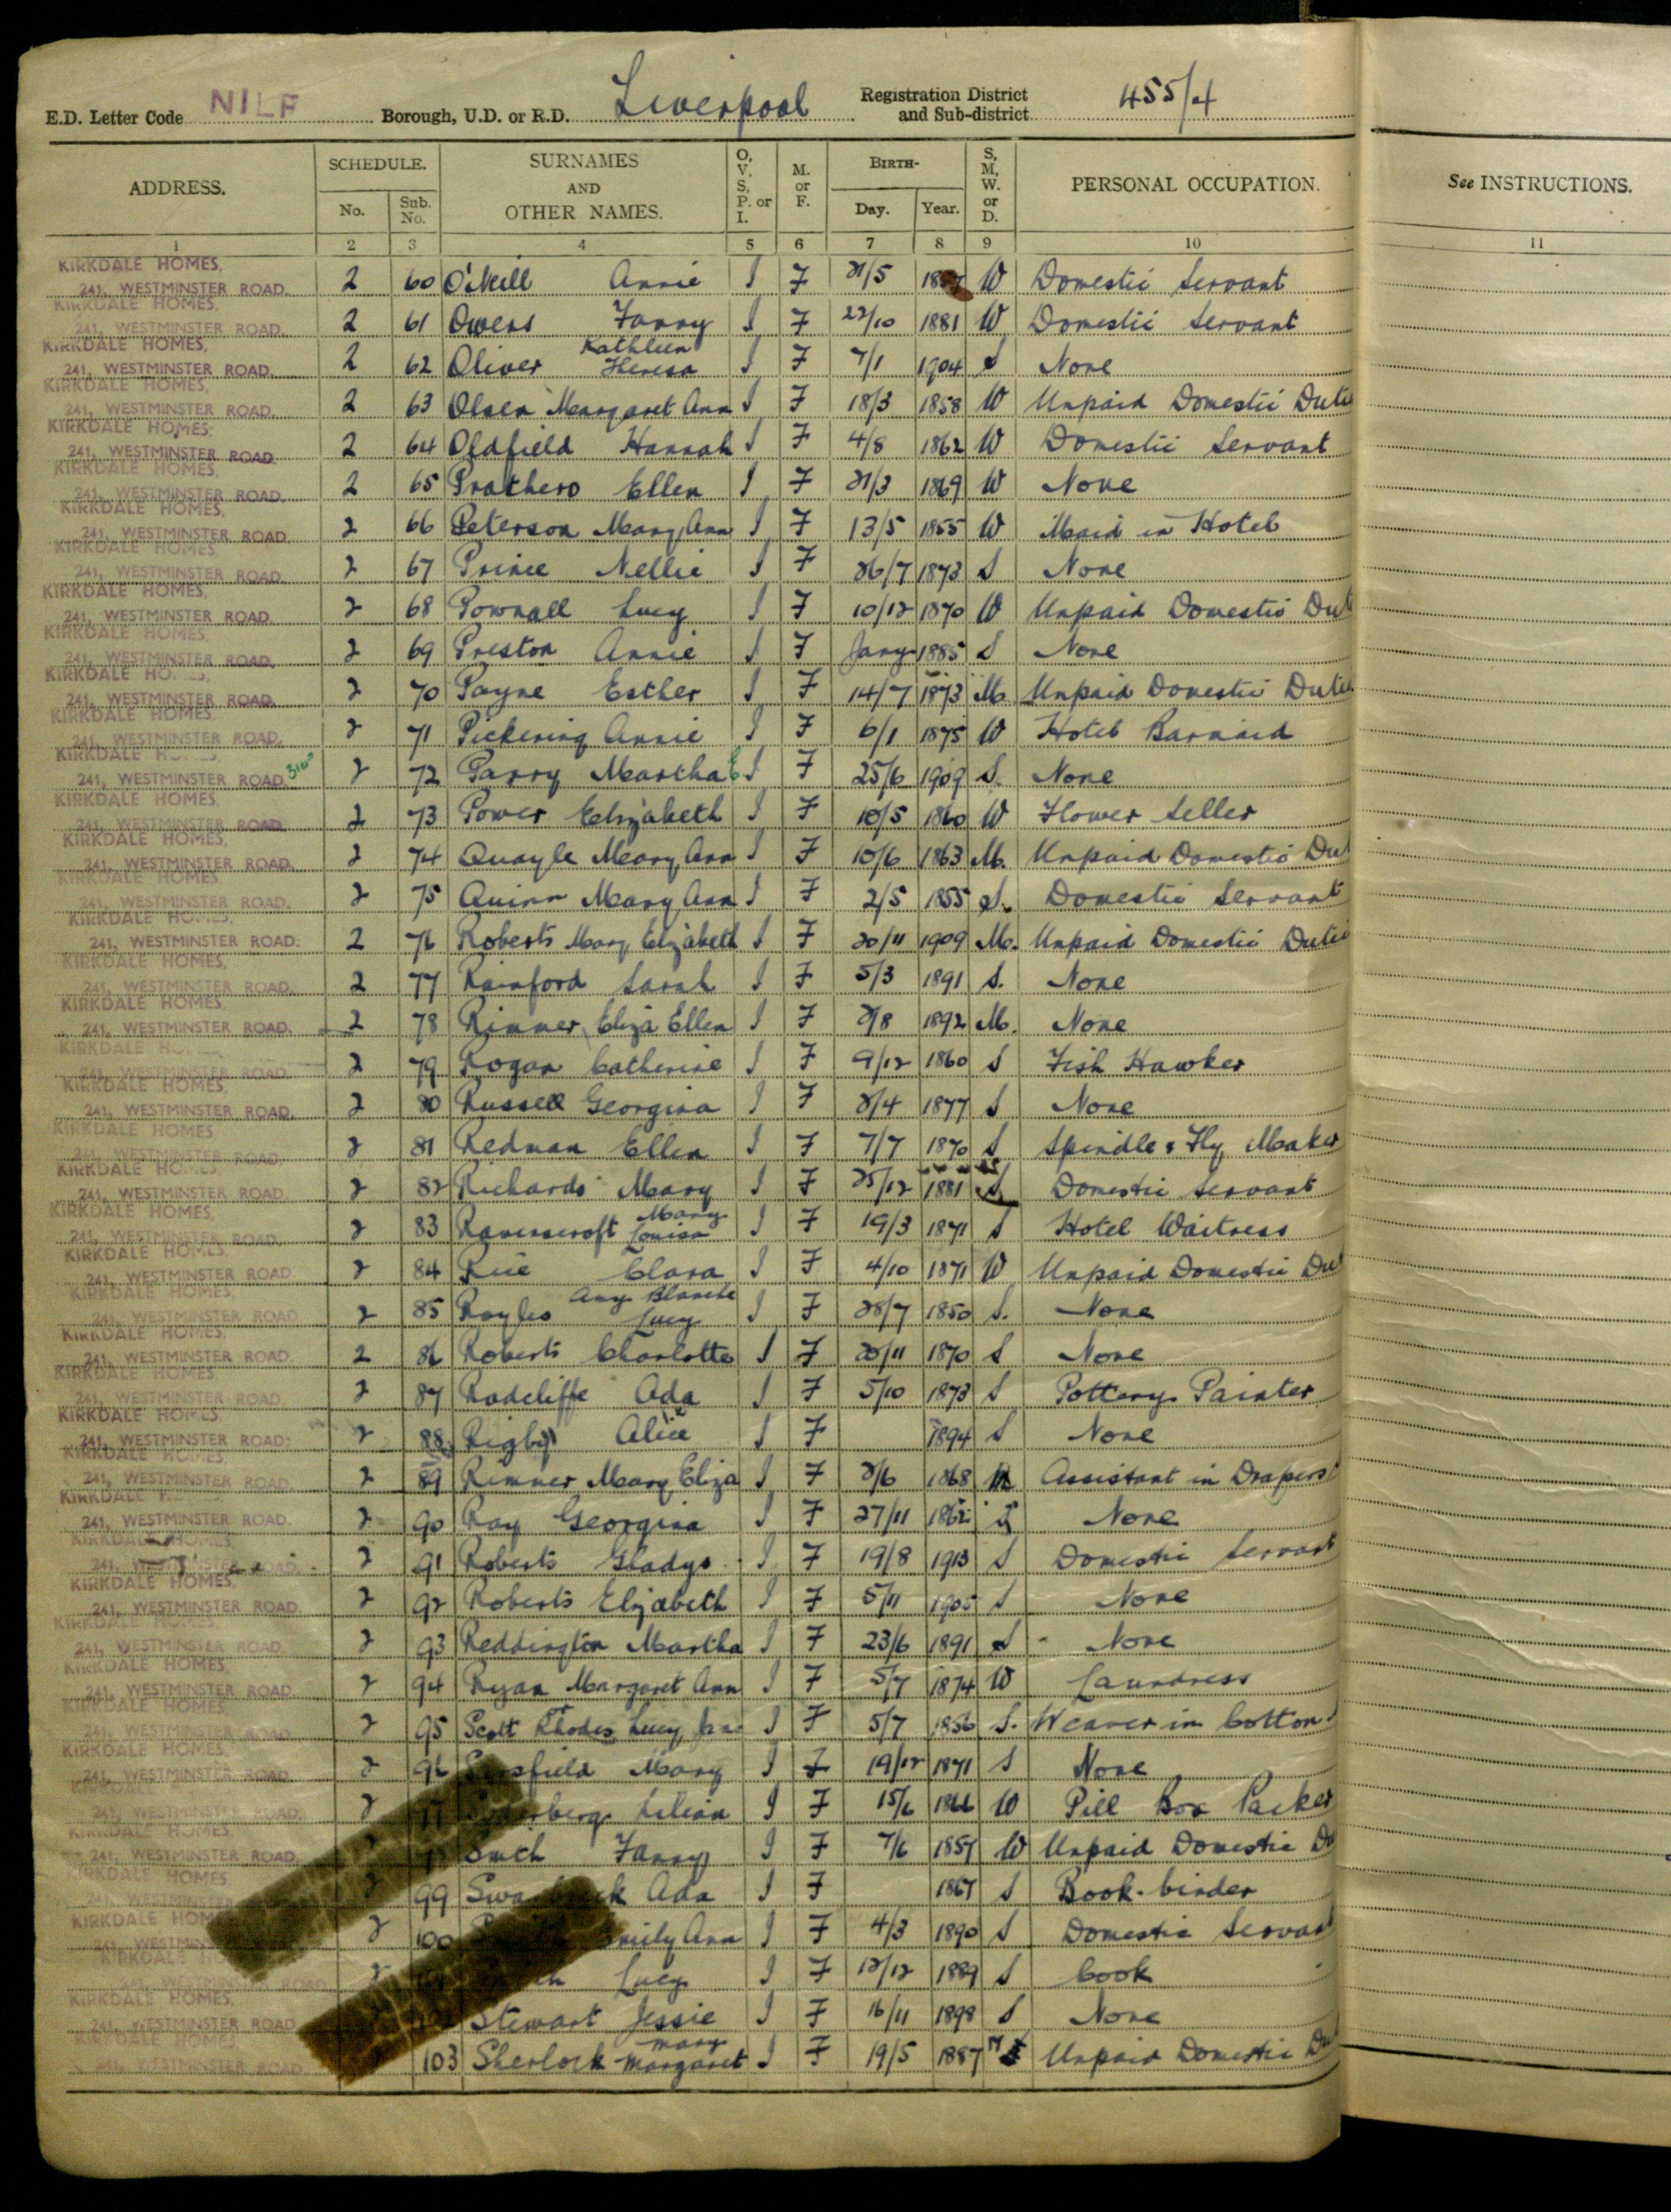 E.D. Letter Code NILF Borough, U.D. or R.D. Liverpool Registration District and Sub-district 455/4
ADDRESS. SCHEDULE. No. Sub. No. SURNAMES AND OTHER NAMES. O, V, S, P. or I. M. or F. BIRTH- Day. Year. S, M, W. or D. PERSONAL OCCUPATION. See INSTRUCTIONS.
1 2 3 4 5 6 7 8 9 10 11
KIRKDALE HOMES, 241, WESTMINSTER ROAD. 2 60 O'Neill Annie I F 21/5 W Domestic Servant
KIRKDALE HOMES, 241, WESTMINSTER ROAD. 2 61 Owens Fanny I F 22/10 1881 W Domestic Servant
KIRKDALE HOMES, 241, WESTMINSTER ROAD. 2 62 Oliver Kathleen Theresa I F 7/1 1904 S None
KIRKDALE HOMES, 241, WESTMINSTER ROAD. 2 63 Olsen Margaret Ann I F 18/3 1858 W Unpaid Domestic Dutie
KIRKDALE HOMES, 241, WESTMINSTER ROAD. 2 64 Oldfield Hannah I F 4/8 1862 W Domestic Servant
KIRKDALE HOMES, 241, WESTMINSTER ROAD. 2 65 Prothero Ellen I F 21/3 1869 W None
KIRKDALE HOMES, 241, WESTMINSTER ROAD. 2 66 Peterson Mary Ann I F 13/5 1855 W Maid in Hotel
KIRKDALE HOMES, 241, WESTMINSTER ROAD. 2 67 Prince Nellie I F 26/7 1873 S None
KIRKDALE HOMES, 241, WESTMINSTER ROAD. 2 68 Pownall Lucy I F 10/12 1870 W Unpaid Domestic Dut
KIRKDALE HOMES, 241, WESTMINSTER ROAD. 2 69 Preston Annie I F Jany 1885 S None
KIRKDALE HOMES, 241, WESTMINSTER ROAD. 2 70 Payne Esther I F 14/7 1873 M. Unpaid Domestic Dutie
KIRKDALE HOMES, 241, WESTMINSTER ROAD. 2 71 Pickering Annie I F 6/1 1875 W Hotel Barmaid
KIRKDALE HOMES, 241, WESTMINSTER ROAD. 2 72 Parry Martha I F 25/6 1909 S. None
KIRKDALE HOMES, 241, WESTMINSTER ROAD. 2 73 Power Elizabeth I F 10/5 1860 W Flower Seller
KIRKDALE HOMES, 241, WESTMINSTER ROAD. 2 74 Quayle Mary Ann I F 10/6 1863 M. Unpaid Domestic Dut
KIRKDALE HOMES, 241, WESTMINSTER ROAD. 2 75 Quinn Mary Ann I F 2/5 1855 S. Domestic Servant
KIRKDALE HOMES, 241, WESTMINSTER ROAD. 2 76 Roberts Mary Elizabeth I F 20/11 1909 M. Unpaid Domestic Dutie
KIRKDALE HOMES, 241, WESTMINSTER ROAD. 2 77 Rainford Sarah I F 5/3 1891 S. None
KIRKDALE HOMES, 241, WESTMINSTER ROAD. 2 78 Rimmer Eliza Ellen I F 2/8 1892 M. None
KIRKDALE HOMES, 241, WESTMINSTER ROAD. 2 79 Rogan Catherine I F 9/12 1860 S Fish Hawker
KIRKDALE HOMES, 241, WESTMINSTER ROAD. 2 80 Russell Georgina I F 2/4 1877 S None
KIRKDALE HOMES, 241, WESTMINSTER ROAD. 2 81 Redman Ellen I F 7/7 1870 S Spindle & Fly Maker
KIRKDALE HOMES, 241, WESTMINSTER ROAD. 2 82 Richards Mary I F 25/12 1881 S Domestic Servant
KIRKDALE HOMES, 241, WESTMINSTER ROAD. 2 83 Ravenscroft Mary Louisa I F 19/3 1871 S Hotel Waitress
KIRKDALE HOMES, 241, WESTMINSTER ROAD. 2 84 Rice Clara I F 4/10 1871 W Unpaid Domestic Dut
KIRKDALE HOMES, 241, WESTMINSTER ROAD. 2 85 Royles Amy Blanche Lucy I F 28/7 1850 S. None
KIRKDALE HOMES, 241, WESTMINSTER ROAD. 2 86 Roberts Charlotte I F 20/11 1870 S None
KIRKDALE HOMES, 241, WESTMINSTER ROAD. 2 87 Radcliffe Ada I F 5/10 1873 S Pottery Painter
KIRKDALE HOMES, 241, WESTMINSTER ROAD. 2 88 Rigby Alice I F 1894 S None
KIRKDALE HOMES, 241, WESTMINSTER ROAD. 2 89 Rimmer Mary Eliza I F 2/6 1868 Assistant in Drapers
KIRKDALE HOMES, 241, WESTMINSTER ROAD. 2 90 Ray Georgina I F 27/11 1862 S None
KIRKDALE HOMES, ROAD. 2 91 Roberts Gladys I F 19/8 1913 S Domestic Servant
KIRKDALE HOMES, 241, WESTMINSTER ROAD. 2 92 Roberts Elizabeth I F 5/11 1905 S None
KIRKDALE HOMES, 241, WESTMINSTER ROAD. 2 93 Reddington Martha I F 23/6 1891 S None
KIRKDALE HOMES, 241, WESTMINSTER ROAD. 2 94 Ryan Margaret Ann I F 5/7 1874 W Laundress
KIRKDALE HOMES, 241, WESTMINSTER ROAD. 2 95 Scott Rhodes Lucy Jane I F 5/7 1856 S. Weaver in Cotton
KIRKDALE HOMES, 241, WESTMINSTER ROAD. 2 96 Mary I F 19/12 1871 S None
KIRKDALE 241, WESTMINSTER ROAD. 2 Lilian I F 15/6 1866 W Pill Box Packer
KIRKDALE HOMES, 241, WESTMINSTER ROAD. Fanny I F 7/6 1857 W Unpaid Domestic Du
KIRKDALE HOMES, 241, WESTMINSTER 99 Ada I F 1867 S Book-binder
KIRKDALE HOMES 241, WESTMINSTER 2 100 Emily Ann I F 4/3 1890 S Domestic Servant
241, WESTMINSTER ROAD 2 Lucy I F 12/12 1889 S Cook
KIRKDALE HOMES, 241, WESTMINSTER ROAD Stewart Jessie I F 16/11 1898 S None
KIRKDALE HOMES, 241, WESTMINSTER ROAD 103 Sherlock Mary Margaret I F 19/5 1887 Unpaid Domestic Du